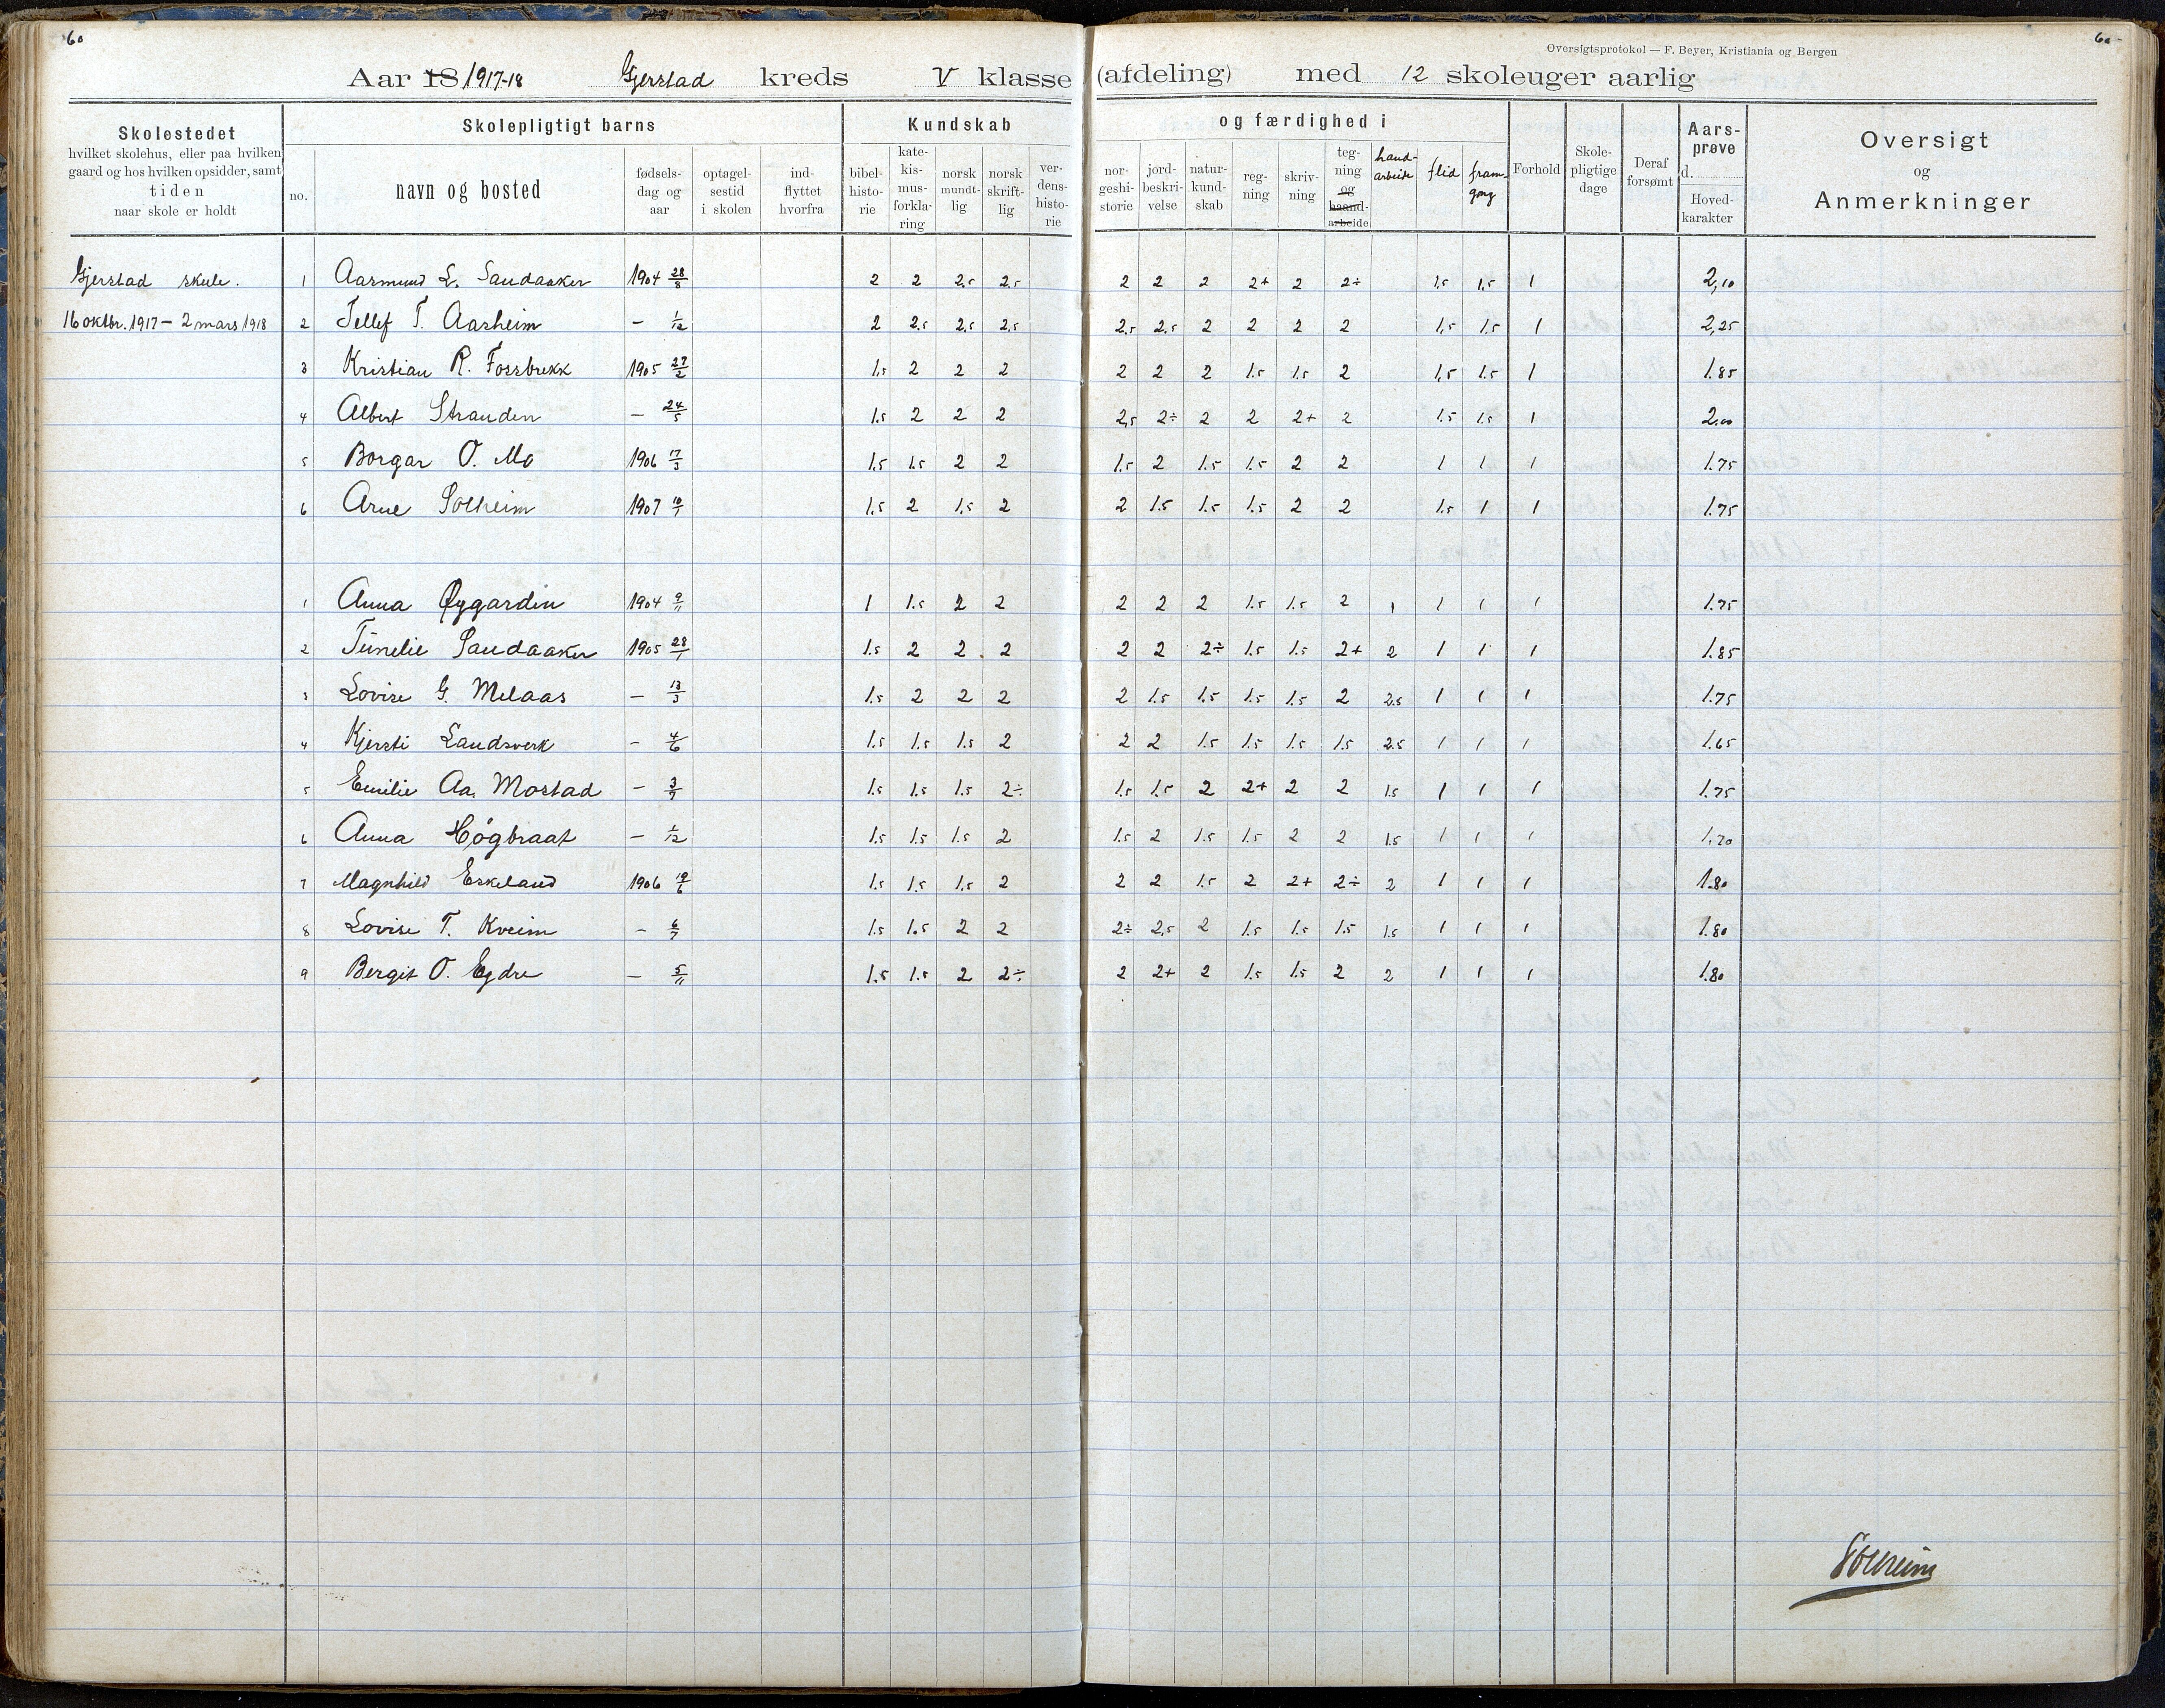 60
60
Oversigtsprotokol — F. Beyer, Kristiania og Bergen
Aar 18 1917-18 Gjerstad kreds V klasse (afdeling) med 12 skoleuger aarlig
Skolestedet
hvilket skolehus, eller paa hvilken
gaard og hos hvilken opsidder, samt
tiden
naar skole er holdt
Skolepligtigt barns
no.
navn og bosted
fødsels-
dag og
aar
optagel-
sestid
i skolen
ind-
flyttet
hvorfra
Kundskab
bibel-
histo-
rie
kate-
kis-
mus-
forkla-
ring
norsk
mundt-
lig
norsk
skrift-
lig
ver-
dens-
histo-
rie
og færdighed i
nor-
geshi-
storie
jord-
beskri-
velse
natur-
kund-
skab
reg-
ning
skriv-
ning
teg-
ning
og
haand-
arbeide
hand-
arbeide
flid
fram-
gang
Forhold
Skole-
pligtige
dage
Deraf
forsømt
Aars-
prøve
d.
Hoved-
karakter
Oversigt
og
Anmerkninger
Gjerstad skule. 1 Aasmund L. Sandaaker 1904 28/8 2 2 2,5 2,5 2 2 2 2+ 2 2÷ 1,5 1,5 1 2,10
16 oktbr. 1917 – 2 mars 1918 2 Tellef T. Aasheim – 1/12 2 2,5 2,5 2,5 2,5 2,5 2 2 2 2 1,5 1.5 1 2,25
3 Kristian R. Fossbrekk 1905 27/2 1,5 2 2 2 2 2 2 1.5 1.5 2 1,5 1.5 1 1.85
4 Albert Stranden – 24/5 1.5 2 2 2 2,5 2÷ 2 2 2+ 2 1.5 1.5 1 2.00
5 Borgar O. Mo 1906 17/3 1.5 1.5 2 2 1.5 2 1.5 1.5 2 2 1 1 1 1.75
6 Arne Solheim 1907 10/1 1.5 2 1.5 2 2 1.5 1.5 1.5 2 2 1.5 1 1 1.75
1 Anna Øygarden 1904 9/11 1 1.5 2 2 2 2 2 1.5 1.5 2 1 1 1 1 1.75
2 Tinelie Sandaaker 1905 28/1 1.5 2 2 2 2 2 2÷ 1.5 1.5 2+ 2 1 1 1 1.85
3 Lovise G. Melaas – 13/3 1.5 2 2 2 2 1.5 1.5 1.5 1.5 2 2.5 1 1 1 1.75
4 Kjersti Landsverk – 4/6 1.5 1.5 1.5 2 2 2 1.5 1.5 1.5 1.5 2.5 1 1 1 1.65
5 Emilie Aa. Mostad – 3/7 1.5 1.5 1.5 2÷ 1.5 1.5 2 2+ 2 2 1.5 1 1 1 1.75
6 Anna Høgbraat – 1/12 1.5 1.5 1.5 2 1.5 2 1.5 1.5 2 2 1.5 1 1 1 1.70
7 Magnhild Eskeland 1906 19/6 1.5 1.5 1.5 2 2 2 1.5 2 2+ 2÷ 2 1 1 1 1.80
8 Lovise T. Kveim – 6/7 1.5 1.5 2 2 2÷ 2,5 2 1.5 1.5 1.5 1.5 1 1 1 1.80
9 Bergit O. Egdre – 5/11 1.5 1.5 2 2÷ 2 2+ 2 1.5 1.5 2 2 1 1 1 1.80
Solheim